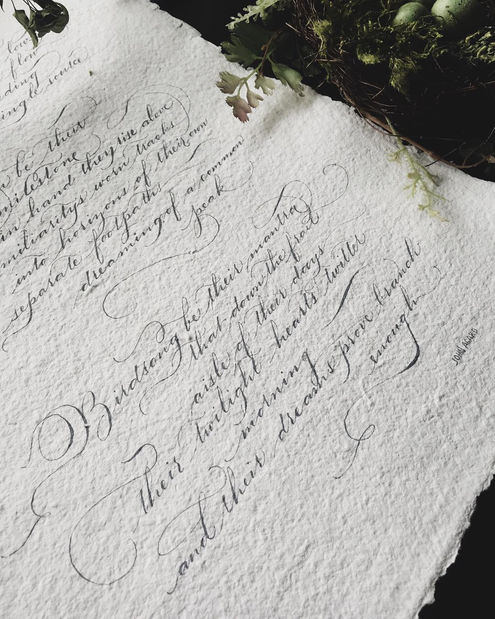 love
flow
ingle source
be their
milestone
in hand they rise above
miliarity's worn tracks
into horizons of their own
separate footpaths
dreaming of a common
peak
Birdsong be their mantra
that down the frail
aisle of their days
their twilight hearts twitter
morning
and their dreams prove branch
enough
JOHN AGARD